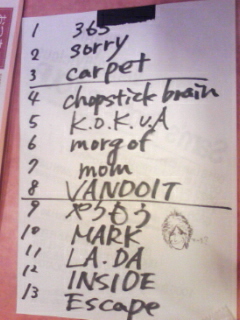 1 365
2 sorry
3 carpet
4 chopstick brain
5 K.O.K.U.A
6 morgof
7 mom
8 VANDOIT
9 やうもう
10 MARK
11 LA.DA
12 INSIDE
13 Escape